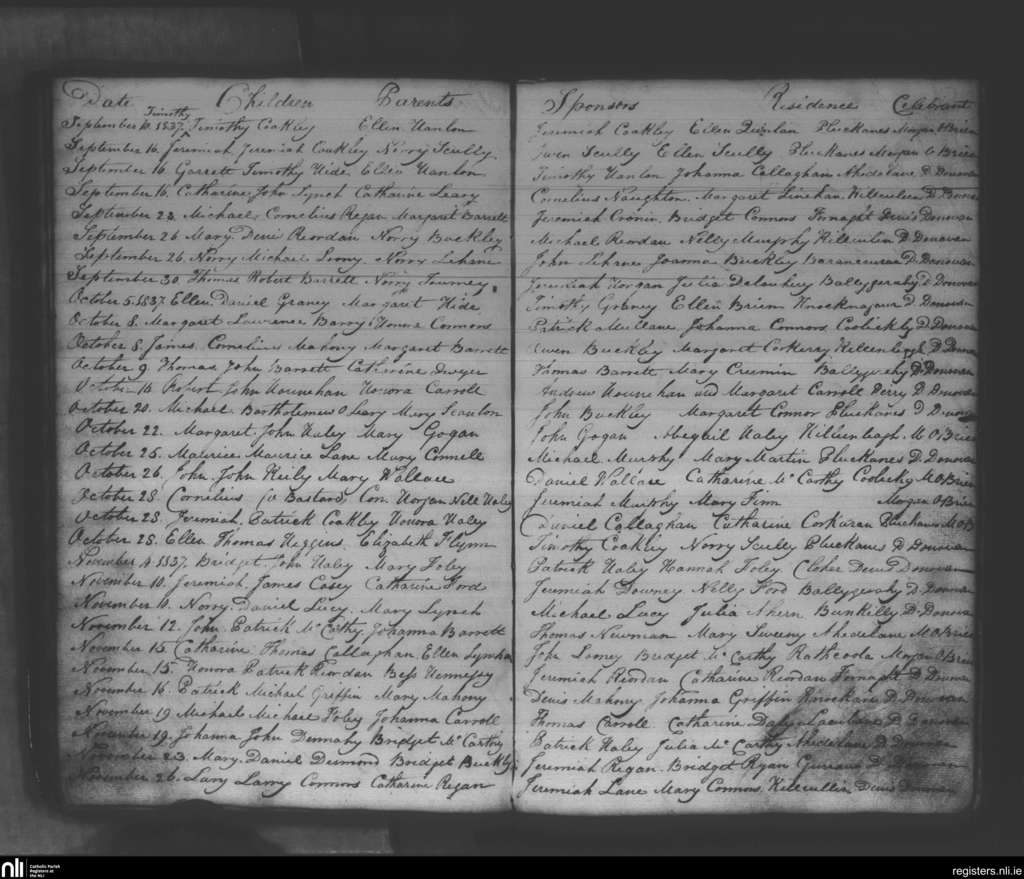 Date Children Parents
Timothy
September 10. 1837. Timothy Coakley Ellen Hanlon
September 16. Jeremiah, Jeremiah Coakley Norry Scully.
September 16. Garrett Timothy Hide, Ellen Hanlon
September 16. Catharine John Lynch Catharine Leary
September 23. Michael, Cornelius Regan Margaret Barrett
September 26 Mary Denis Reordan Norry Buckley
September 26. Norry Michael Loony Norry Lehane
September 30. Thomas Robert Barrett Norry
October 5. 1837. Ellen Daniel Graney Margaret Hide
October 8. Margaret Lawrence Barry Honora Connors
October 8. James. Cornelius Mahony Margaret Barrett
October 9. Thomas John Barrett Catherine Dwyer
October Robert John Hounehan Honora Carroll
October 20. Michael Bartholomew O Leary Mary Scanlon
October 22. Margaret John Haley Mary Gogan
October 25. Maurice Maurice Lane Mary Connell
October 26. John. John Keily Mary Wallace
October 28. Cornelius (a Bastard) Con. Horgan Nell Haley
October 28. Jeremiah. Patrick Coakley Honora Haley
October 28. Ellen Thomas Higgens. Elizabeth Flynn
November 4. 1837. Bridget. John Haley Mary Foley
November 10. Jeremiah James Casey Catharine Ford
November 10. Norry. Daniel Lucy. Mary Lynch
November 12. John. Patrick Mc Carthy Johanna Barrett
November 15. Catharine. Thomas Callaghan. Ellen
November 15. Honora Patrick Riordan Bess Hennessy
November 16. Patrick Michael Griffin Mary Mahony
November 19 Michael Michael Foley Johanna Carroll
November 19. Johanna John Dennahy Bridget Mc Carthy
November 23. Mary. Daniel Desmond Bridget Buckly
November 26. Lary Larry Connors Catharine Regan
Sponsors Residence Celebrant
Jeremiah Coakley Ellen Quinlan Pluckanes Morgan O Brien
Owen Scully Ellen Scully Pluckanes Morgan O Brien
Timothy Hanlon Johanna Callaghan Ahidelane D Donovan
Cornelius Naughton. Margaret Linehan. Kilcuilen D Donovan
Jeremiah Cronin. Bridget Connors Fornaght Denis Donovan
Michael Reordan Nelly Murphy Kilcuilen D. Donovan
John Lehane Joanna Buckley D. Donovan
Jeremiah Horgan Julia Delouhery Ballygerahy D Donovan
Timothy Graney Ellen Brien Knocknagour D. Donovan
Patrick Johanna Connors Coolickly D Donovan
Owen Buckley Margaret Corkerry D. Donovan
Thomas Barrett Mary Cremin Ballygerahy D. Donovan
Andrew Hounehan and Margaret Carroll Derry D Donovan
John Buckley Margaret Connor Pluckanes D Donovan
John Gogan Abegail Haley Killeenleagh. M O'Brien
Michael Murphy Mary Martin Pluckanes D. Donovan
Daniel Wallace Catharine Mc Carthy Coolechy M O Brien
Jeremiah Murphy Mary Finn Morgan O Brien
Daniel Callaghan Catharine Corkeran Pluckanes M O B
Timothy Coakley Norry Scully Pluckanes D Donovan
Patrick Haley Hannah Foley Denis Donovan
Jeremiah Downey Nelly Ford Ballygerahy D. Donovan
Michael Lucy Julia Ahern Bunkilly D. Donovan
Thomas Newman Mary Sweeny Ahedelane M O Brien
John Looney Bridget Mc Carthy Rathcoola Morgan O Brien
Jeremiah Riordan Catharine Riordan Fornaght D. Donovan
Denis Mahony Johanna Griffin D. Donovan
Thomas Carroll Catharine Daly D Donovan
Patrick Haley Julia Mc Carthy Ahedelane D Donovan
Jeremiah Regan. Bridget Ryan D Donovan
Jeremiah Lane Mary Connors. Kilcullen Denis Donovan
nli Catholic Parish Registers at the NLI
registers.nli.ie